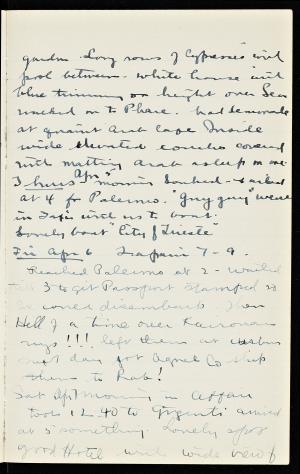 garden. Long rows of Cypresses with
pool between. White house with
blue trimming on height over Sea
walked on to Phare. had Lemonade
at quaint Arab Cafe Inside
wide elevated couches covered
with matting Arab asleep on one
Thurs Apr 5 morning looked sailed
at 4 for Palermo. "Guy guy" went
in Taxi with us to boat.
Lovely boat "City of Trieste"
Fri Apr 6 Trapani 7-9.
Reached Palermo at 2 - waited
till 3 to get Passport stamped so
we could disembark. Then
Hell of a time over Kairouan
rugs!!! left them at customs
next day got Agnel Co ship
them to Rab!
Sat Apr 7 morning in
Took 12.40 to Girgenti arrived
at 5 something. Lovely spot
good Hotel with wide view of